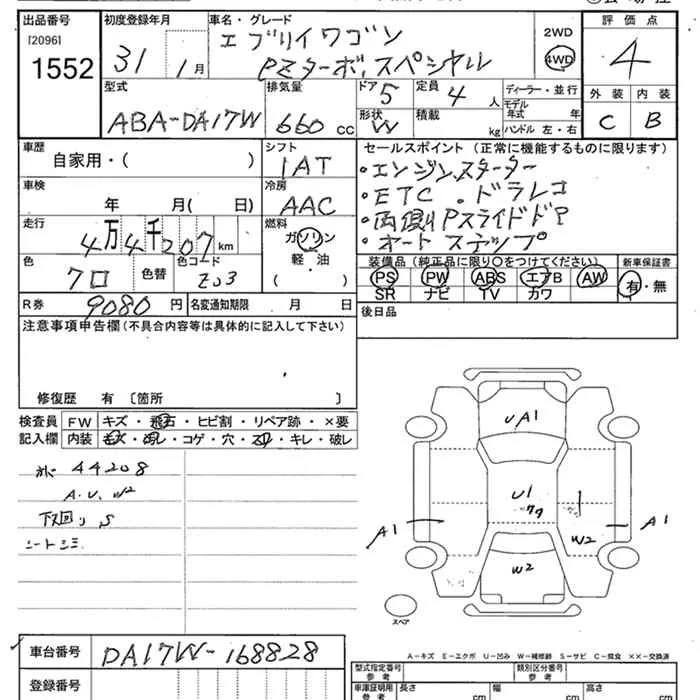 出品番号 初度登録年月 車名・グレード 評価点
[2096] エブリイワゴン 2WD
1552 31年1月 PZターボスペシャル 4WD 4
型式 排気量 ドア5 定員4人 ディーラー・並行 外装 内装
ABA-DA17W 660cc 形状W 積載kg モデル年式 年 C B
ハンドル 左・右
車歴 シフト セールスポイント (正常に機能するものに限ります)
自家用・( ) IAT ・エンジンスターター
車検 冷房 ・ETC.ドラレコ
年 月( 日) AAC ・両側Pスライドドア
走行 燃料 ・オートステップ
4万4千207km ガソリン
軽・油
( )
色 色替 色コード
クロ ZJ3
装備品 (純正品に限り〇をつけてください) 新車保証書
PS PW ABS エアB AW 有・無
SR ナビ TV カワ
R券 9080円 名変通知期限 月 日 後日品
注意事項申告欄(不具合内容等は具体的に記入して下さい)
修復歴 有〔箇所 〕
検査員 FW キズ・飛石・ヒビ割・リペア跡・×要
記入欄 内装 キズ・汚れ・コゲ・穴・スレ・キレ・破レ
44208
A.U.W2
下回りS
シートシミ
UA1
U1
79
A1 A1
W2
W2
スペア
A-キズ E-エクボ U-凹み W-補修跡 S-サビ C-腐食 ××-交換済
車台番号 DA17W-168828
型式指定番号 参考 類別区分番号 参考
登録番号 車庫証明用 参考 長さ cm 幅 cm 高さ cm